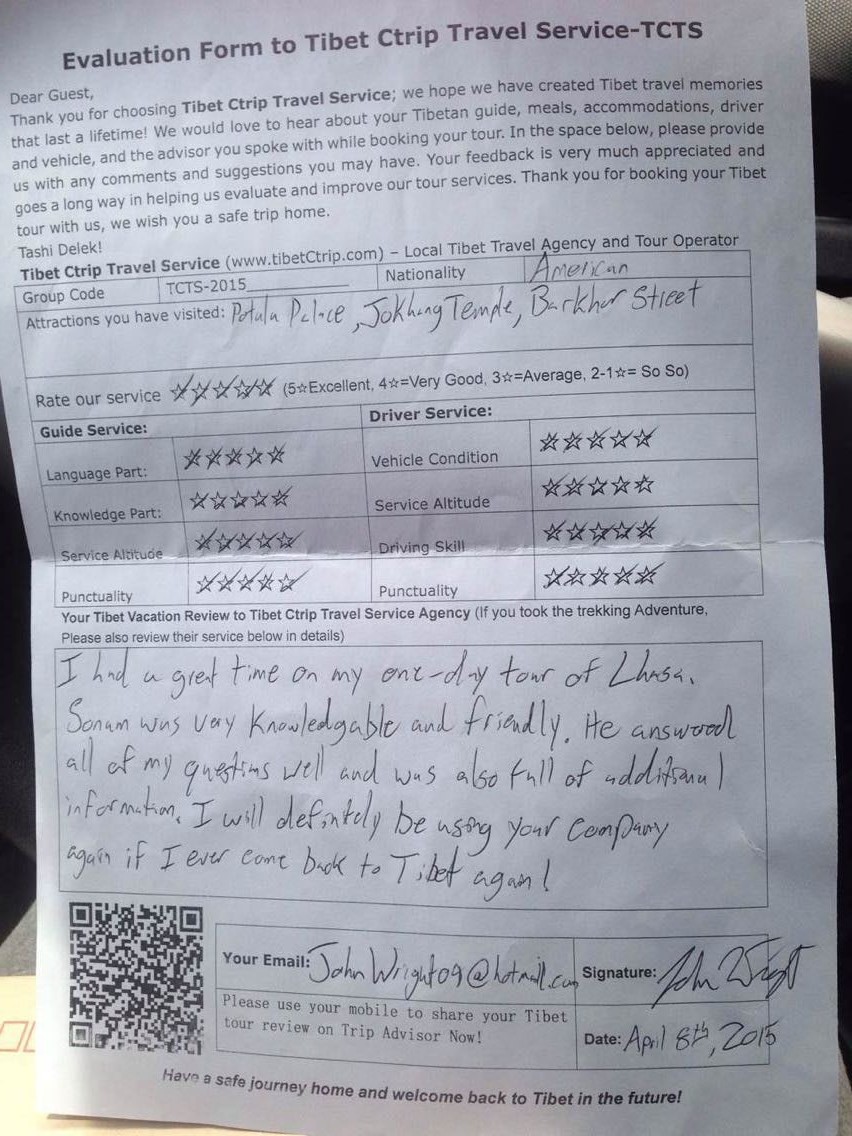 Evaluation Form to Tibet Ctrip Travel Service-TCTS
Dear Guest,
Thank you for choosing Tibet Ctrip Travel Service; we hope we have created Tibet travel memories
that last a lifetime! We would love to hear about your Tibetan guide, meals, accommodations, driver
and vehicle, and the advisor you spoke with while booking your tour. In the space below, please provide
us with any comments and suggestions you may have. Your feedback is very much appreciated and
goes a long way in helping us evaluate and improve our tour services. Thank you for booking your Tibet
tour with us, we wish you a safe trip home.
Tashi Delek!
Tibet Ctrip Travel Service (www.tibetCtrip.com) – Local Tibet Travel Agency and Tour Operator
Group Code TCTS-2015__________ Nationality American
Attractions you have visited: Potala Palace, Jokhang Temple, Barkhor Street
Rate our service ☆☆☆☆☆ (5☆Excellent, 4☆=Very Good, 3☆=Average, 2-1☆= So So)
Guide Service: Driver Service:
Language Part: ☆☆☆☆☆ Vehicle Condition ☆☆☆☆☆
Knowledge Part: ☆☆☆☆☆ Service Altitude ☆☆☆☆☆
Service Altitude ☆☆☆☆☆ Driving Skill ☆☆☆☆☆
Punctuality ☆☆☆☆☆ Punctuality ☆☆☆☆☆
Your Tibet Vacation Review to Tibet Ctrip Travel Service Agency (If you took the trekking Adventure,
Please also review their service below in details)
I had a great time on my one-day tour of Lhasa.
Sonam was very knowledgable and friendly. He answered
all of my questions well and was also full of additional
information. I will definitely be using your company
again if I ever come back to Tibet again!
Your Email: JohnWright09@hotmail.com Signature: John Wright
Please use your mobile to share your Tibet
tour review on Trip Advisor Now!
Date: April 8th, 2015
Have a safe journey home and welcome back to Tibet in the future!